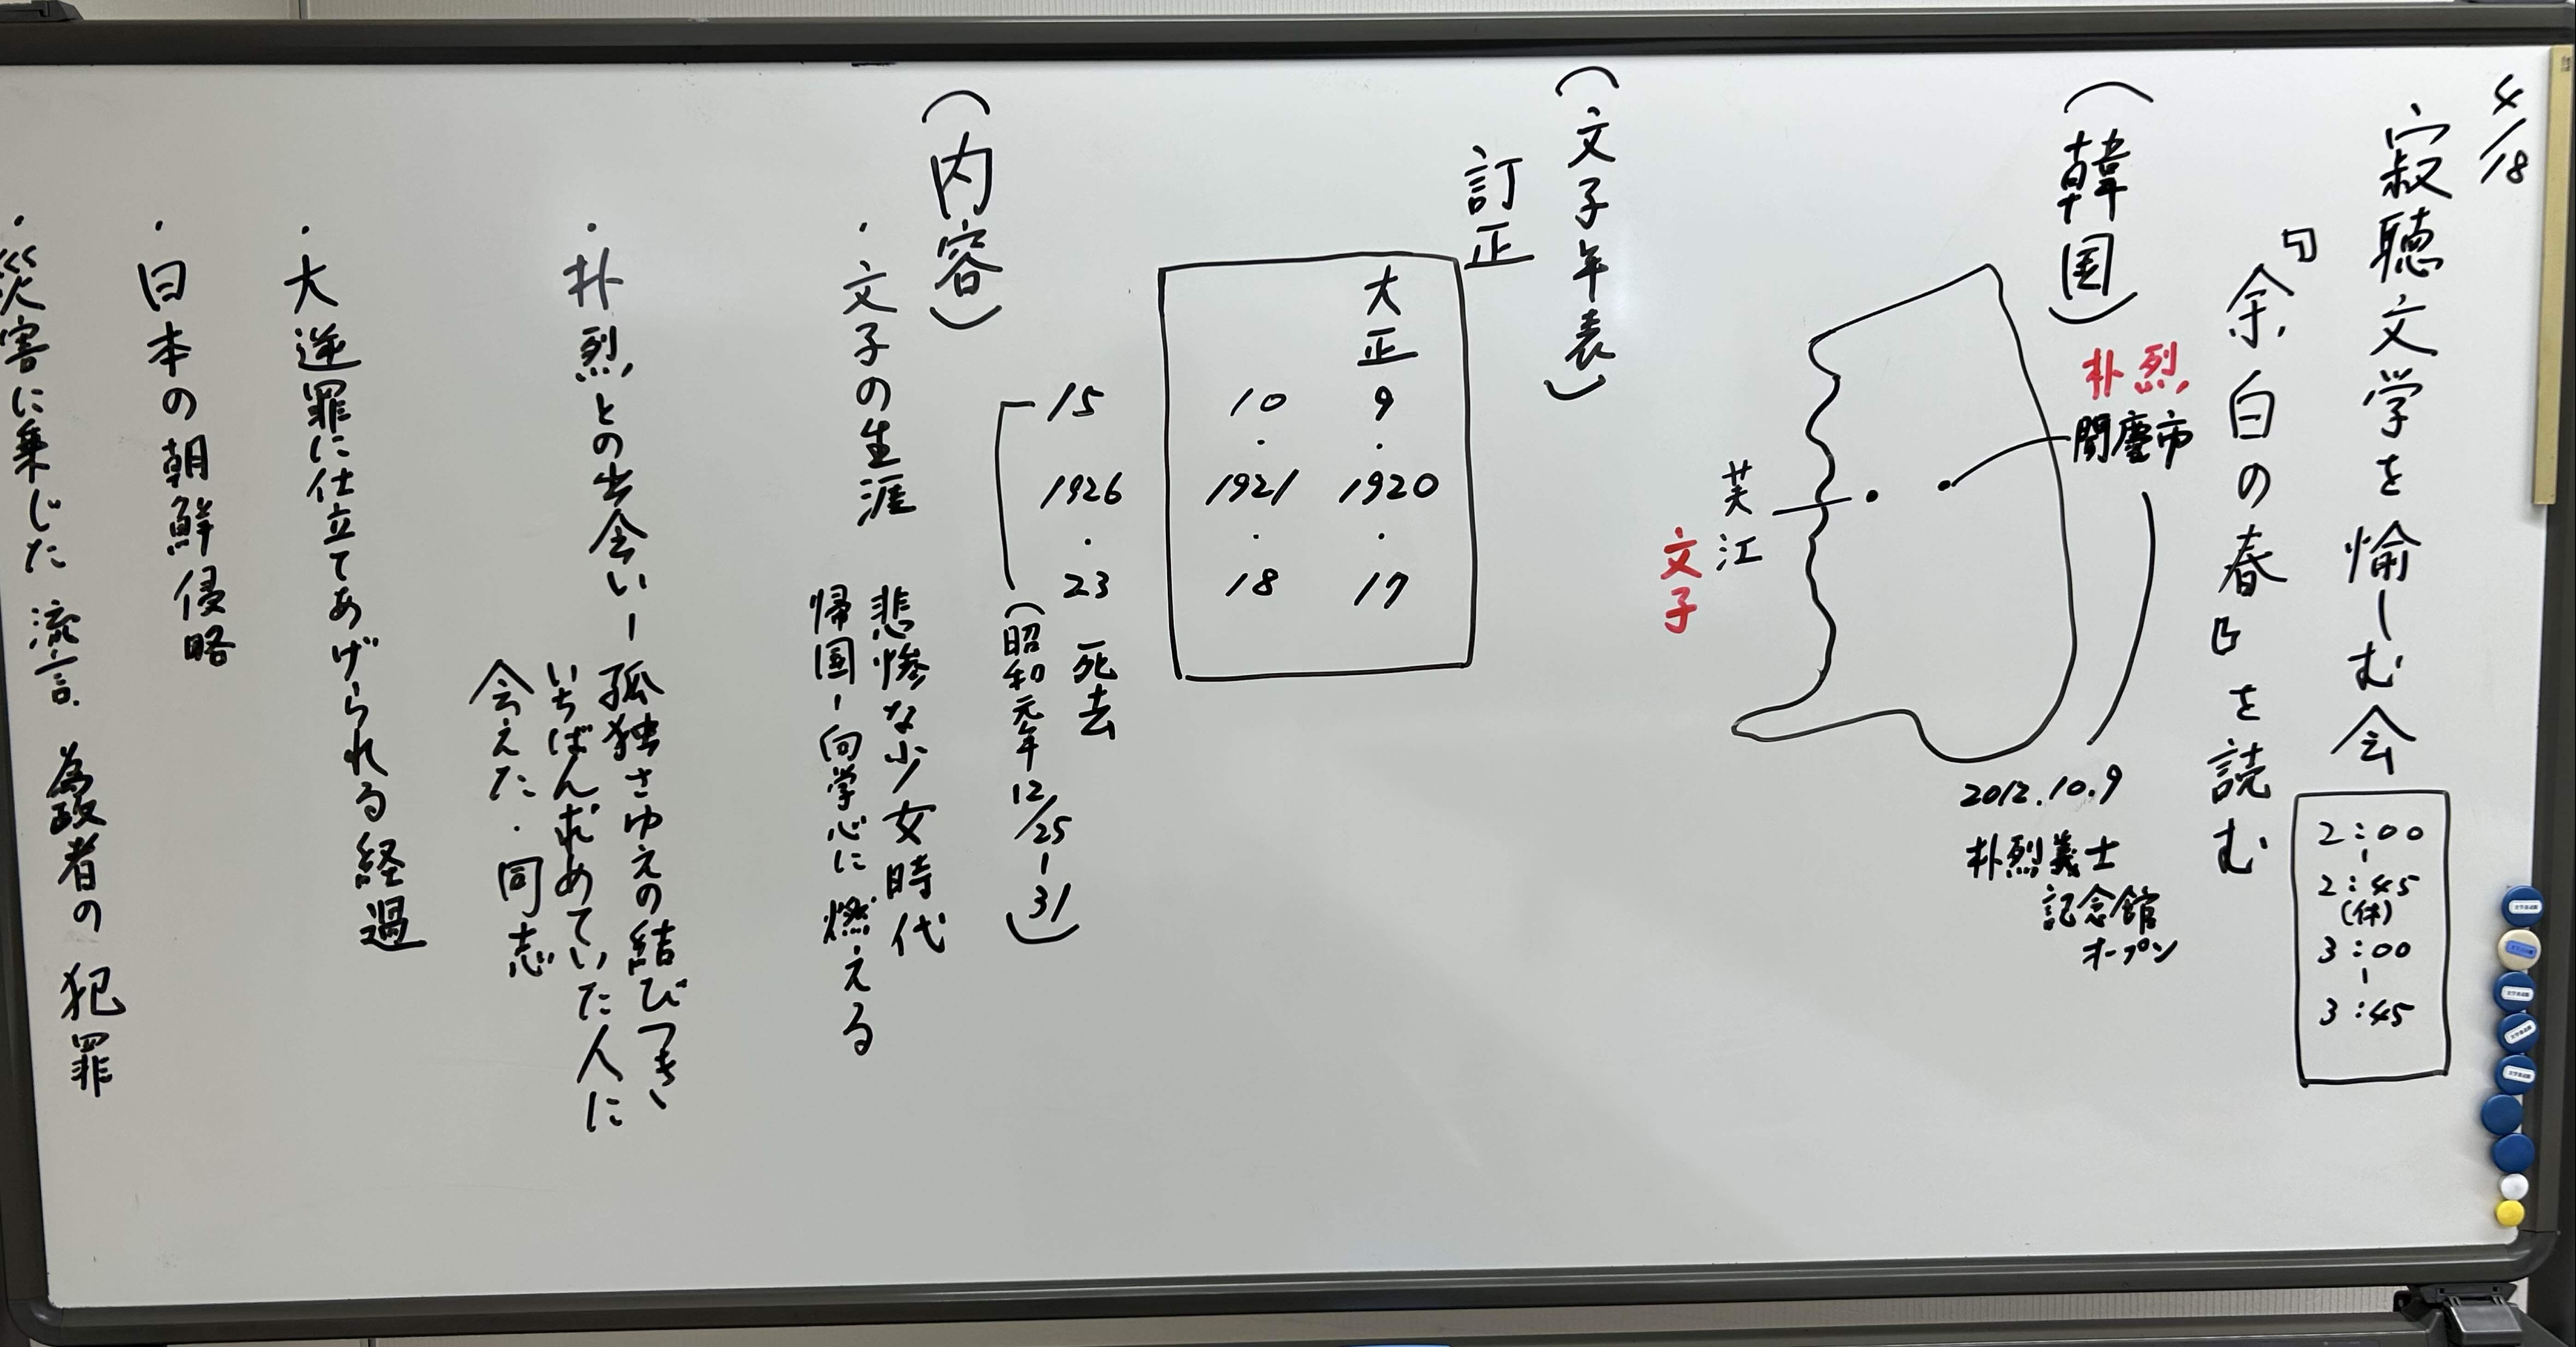 4/18
寂聴文学を愉しむ会
2:00
-
2:45
(休)
3:00
-
3:45
『余白の春』を読む
(韓国)
朴烈
聞慶市
2012.10.9
朴烈義士
記念館
オープン
芙江
文子
(文子年表)
訂正
大正9・1920・17
10・1921・18
15 1926・23 死去
(昭和元年12/25-31)
(内容)
・文子の生涯
悲惨な少女時代
帰国-向学心に燃える
・朴烈との出会い-孤独さゆえの結びつき、
いちばん求めていた人に
会えた・同志
・大逆罪に仕立てあげられる経過
・日本の朝鮮侵略
・災害に乗じた流言 為政者の犯罪